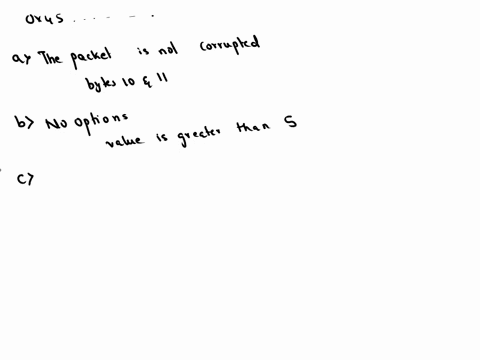 0x45 ..... .
a) The packet is not corrupted
bytes 10 & 11
b) No options
value is greater than 5
c)